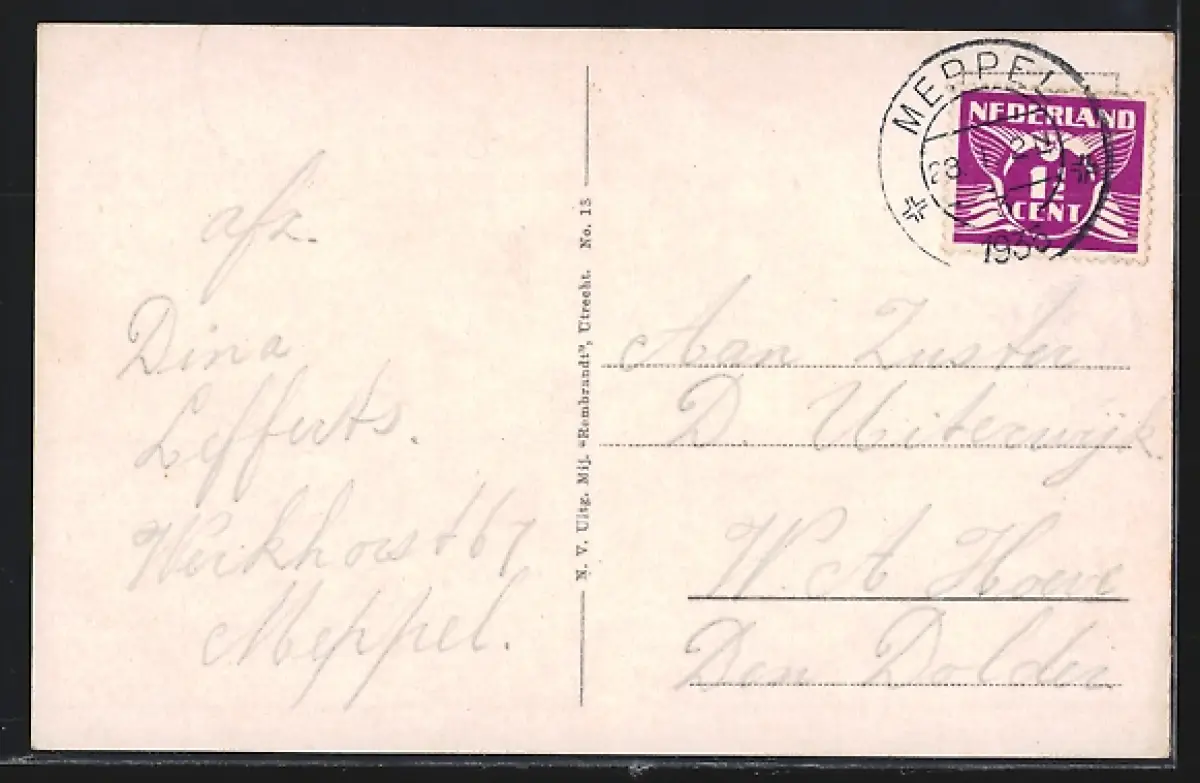 afz.
Dina
Lefferts.
Werkhorst 67
Meppel.
N. V. Uitg. Mij. "Rembrandt", Utrecht. No. 13
MEPPEL
28.
1936
NEDERLAND
1½
CENT
Aan Zuster
D. Uiterwijk.
W. A Hoeve
Den Dolder